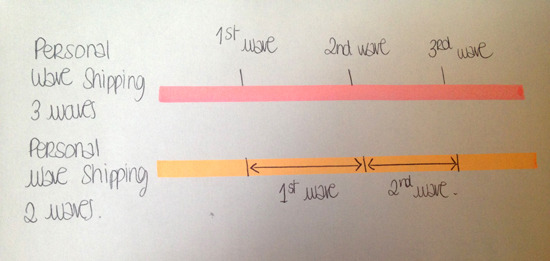 Personal
Wave Shipping
3 waves
1st wave
2nd wave
3rd wave
Personal
Wave Shipping
2 waves.
1st wave
2nd wave.